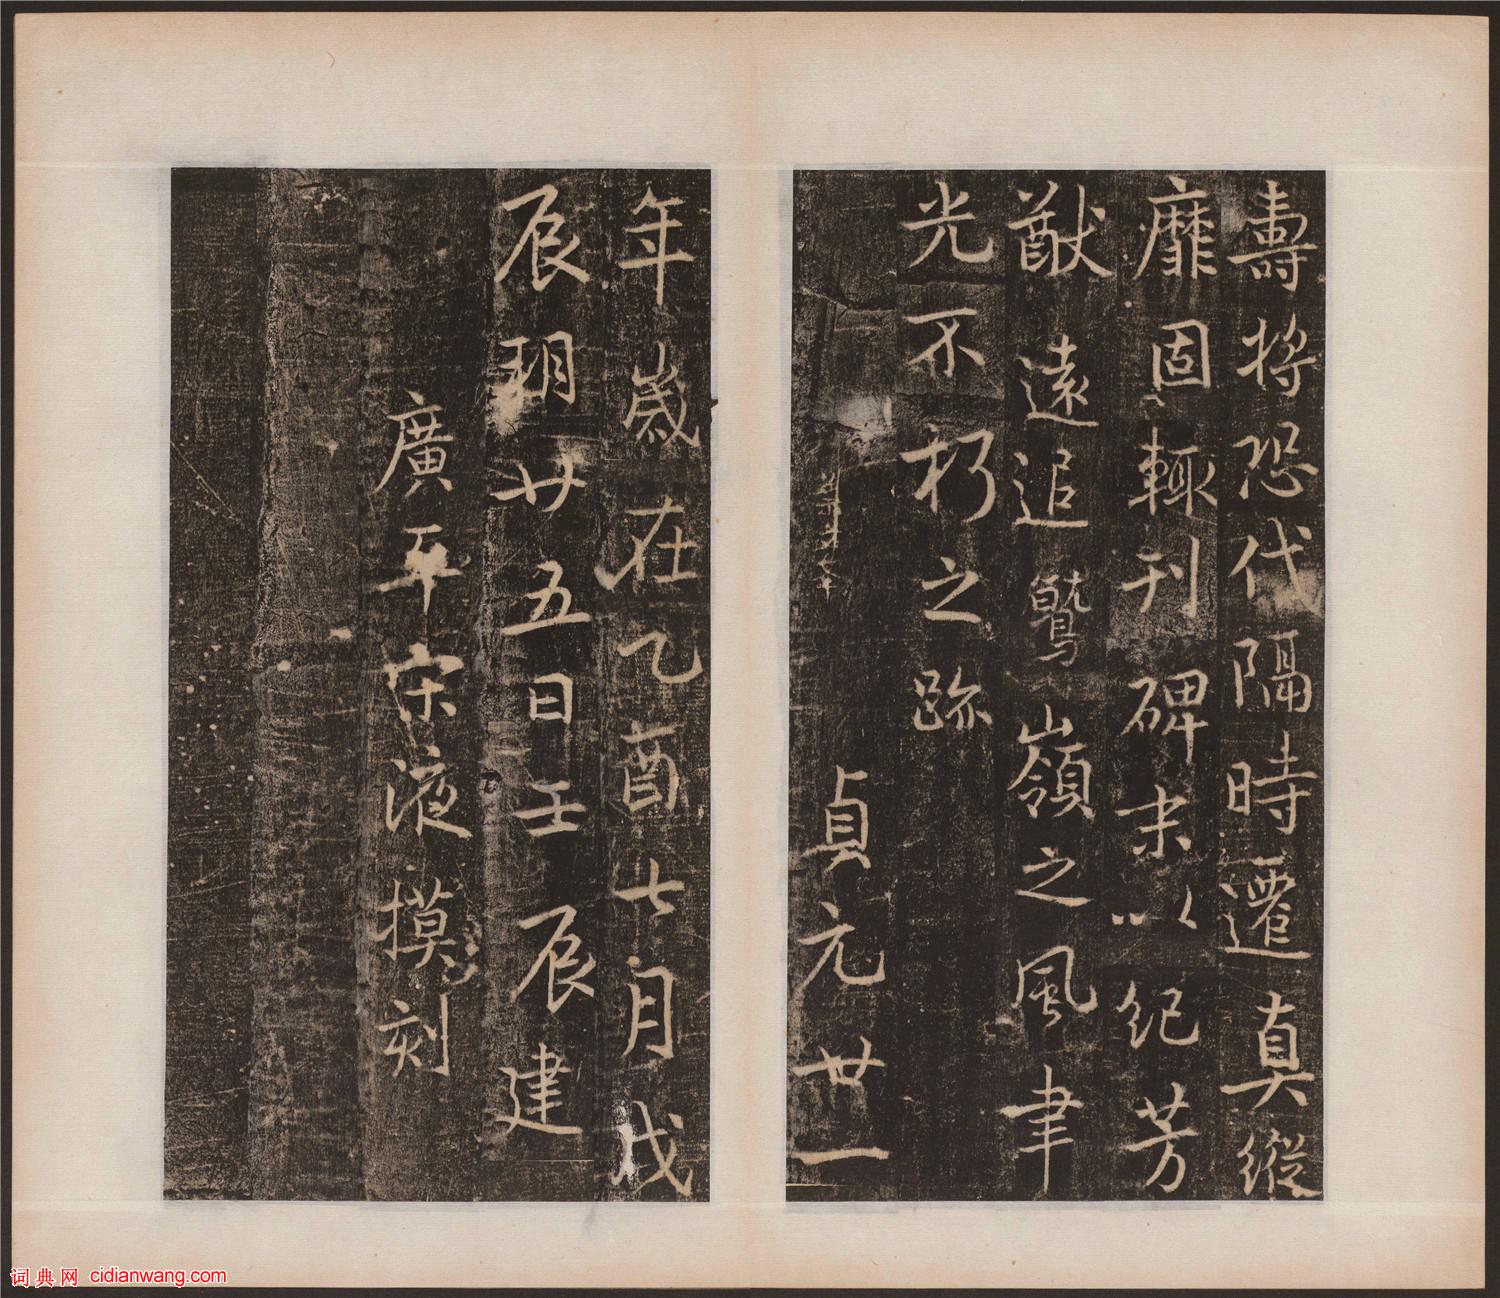 壽將恐代隔時遷真縱
靡固輙刊碑末以紀芳
猷遠追鷲嶺之風聿
光不朽之跡
貞元廿一
年歲在乙酉七月戊
辰朔廿五日壬辰建
廣平宋液摸刻
词典网 cidianwang.com